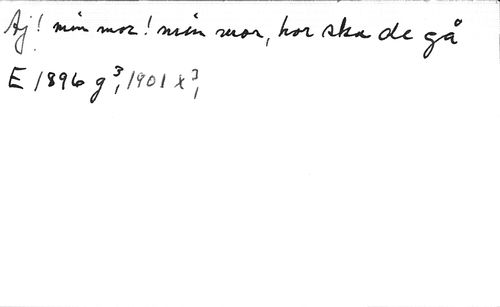 Aj! min mor! min mor, hor ska de gå
E 1896 g³, 1901 x³,